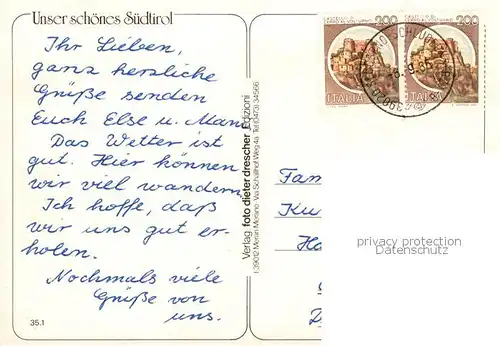 Unser schönes Südtirol
Ihr Lieben,
ganz herzliche
Grüße senden
Euch Else u. Mann
Das Wetter ist
gut. Hier können
wir viel wandern
Ich hoffe, daß
wir uns gut er-
holen.
Nochmals viele
Grüße von
uns.
35.1
Verlag foto dieter drescher Edizioni
I-39012 Meran Merano · Via Schaffhof Weg 4a · Tel (0473) 34566
200
200
ITALIA
ITALIA
Fam
Ku
Ha
privacy protection
Datenschutz